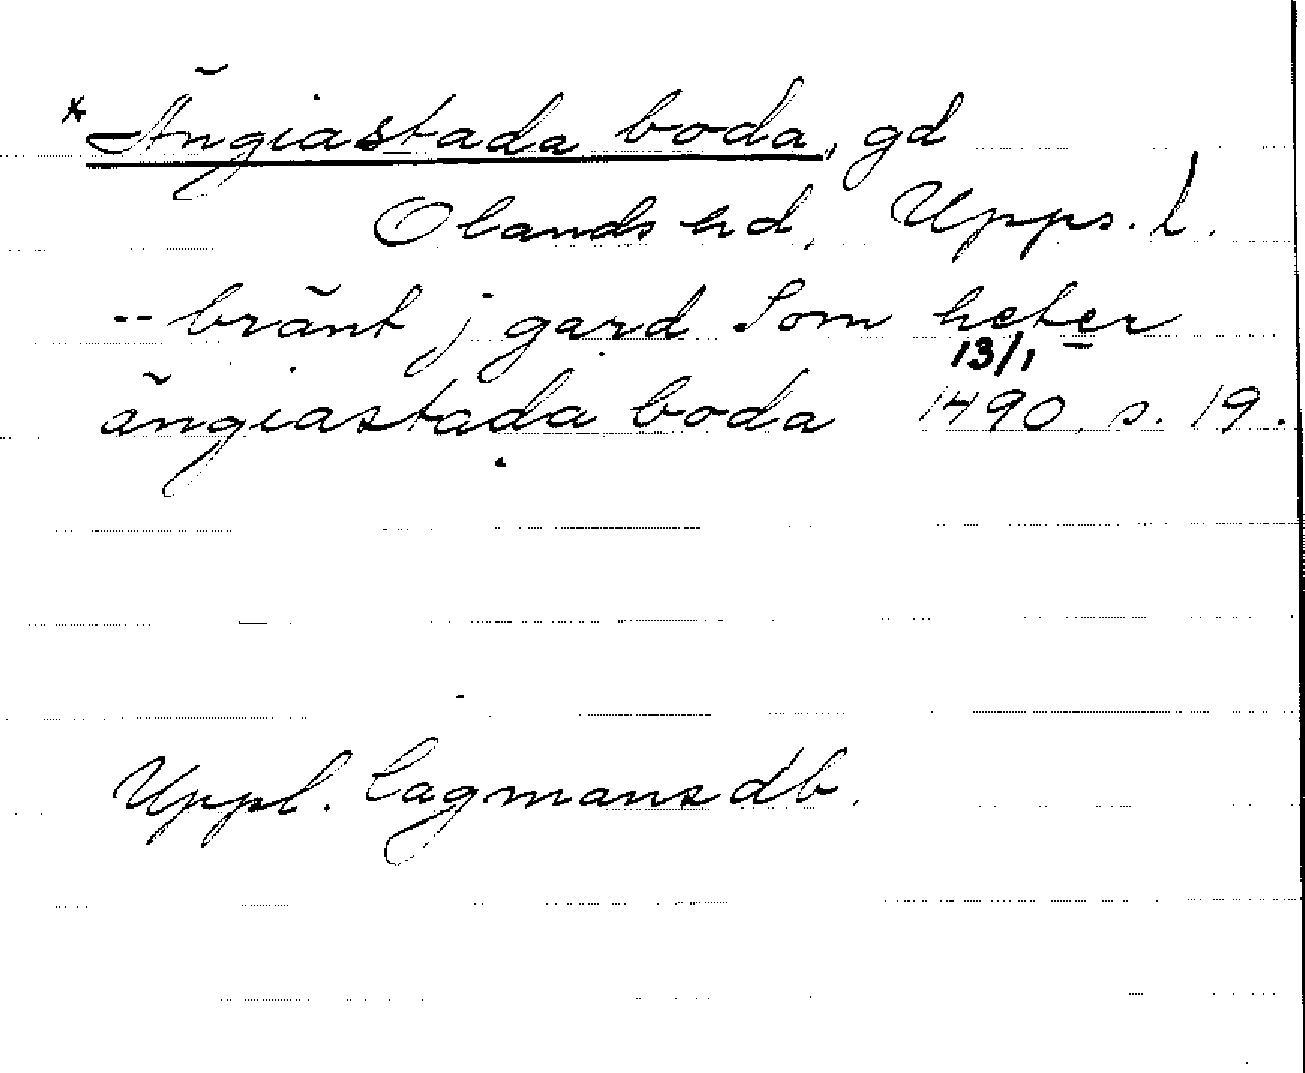 * Ängiastada boda, gd
Olands hd, Upps. l.
-- bränt j gard Som heter
ängiastada boda 13/1 1490, s. 19.
Uppl. Lagmansdb.